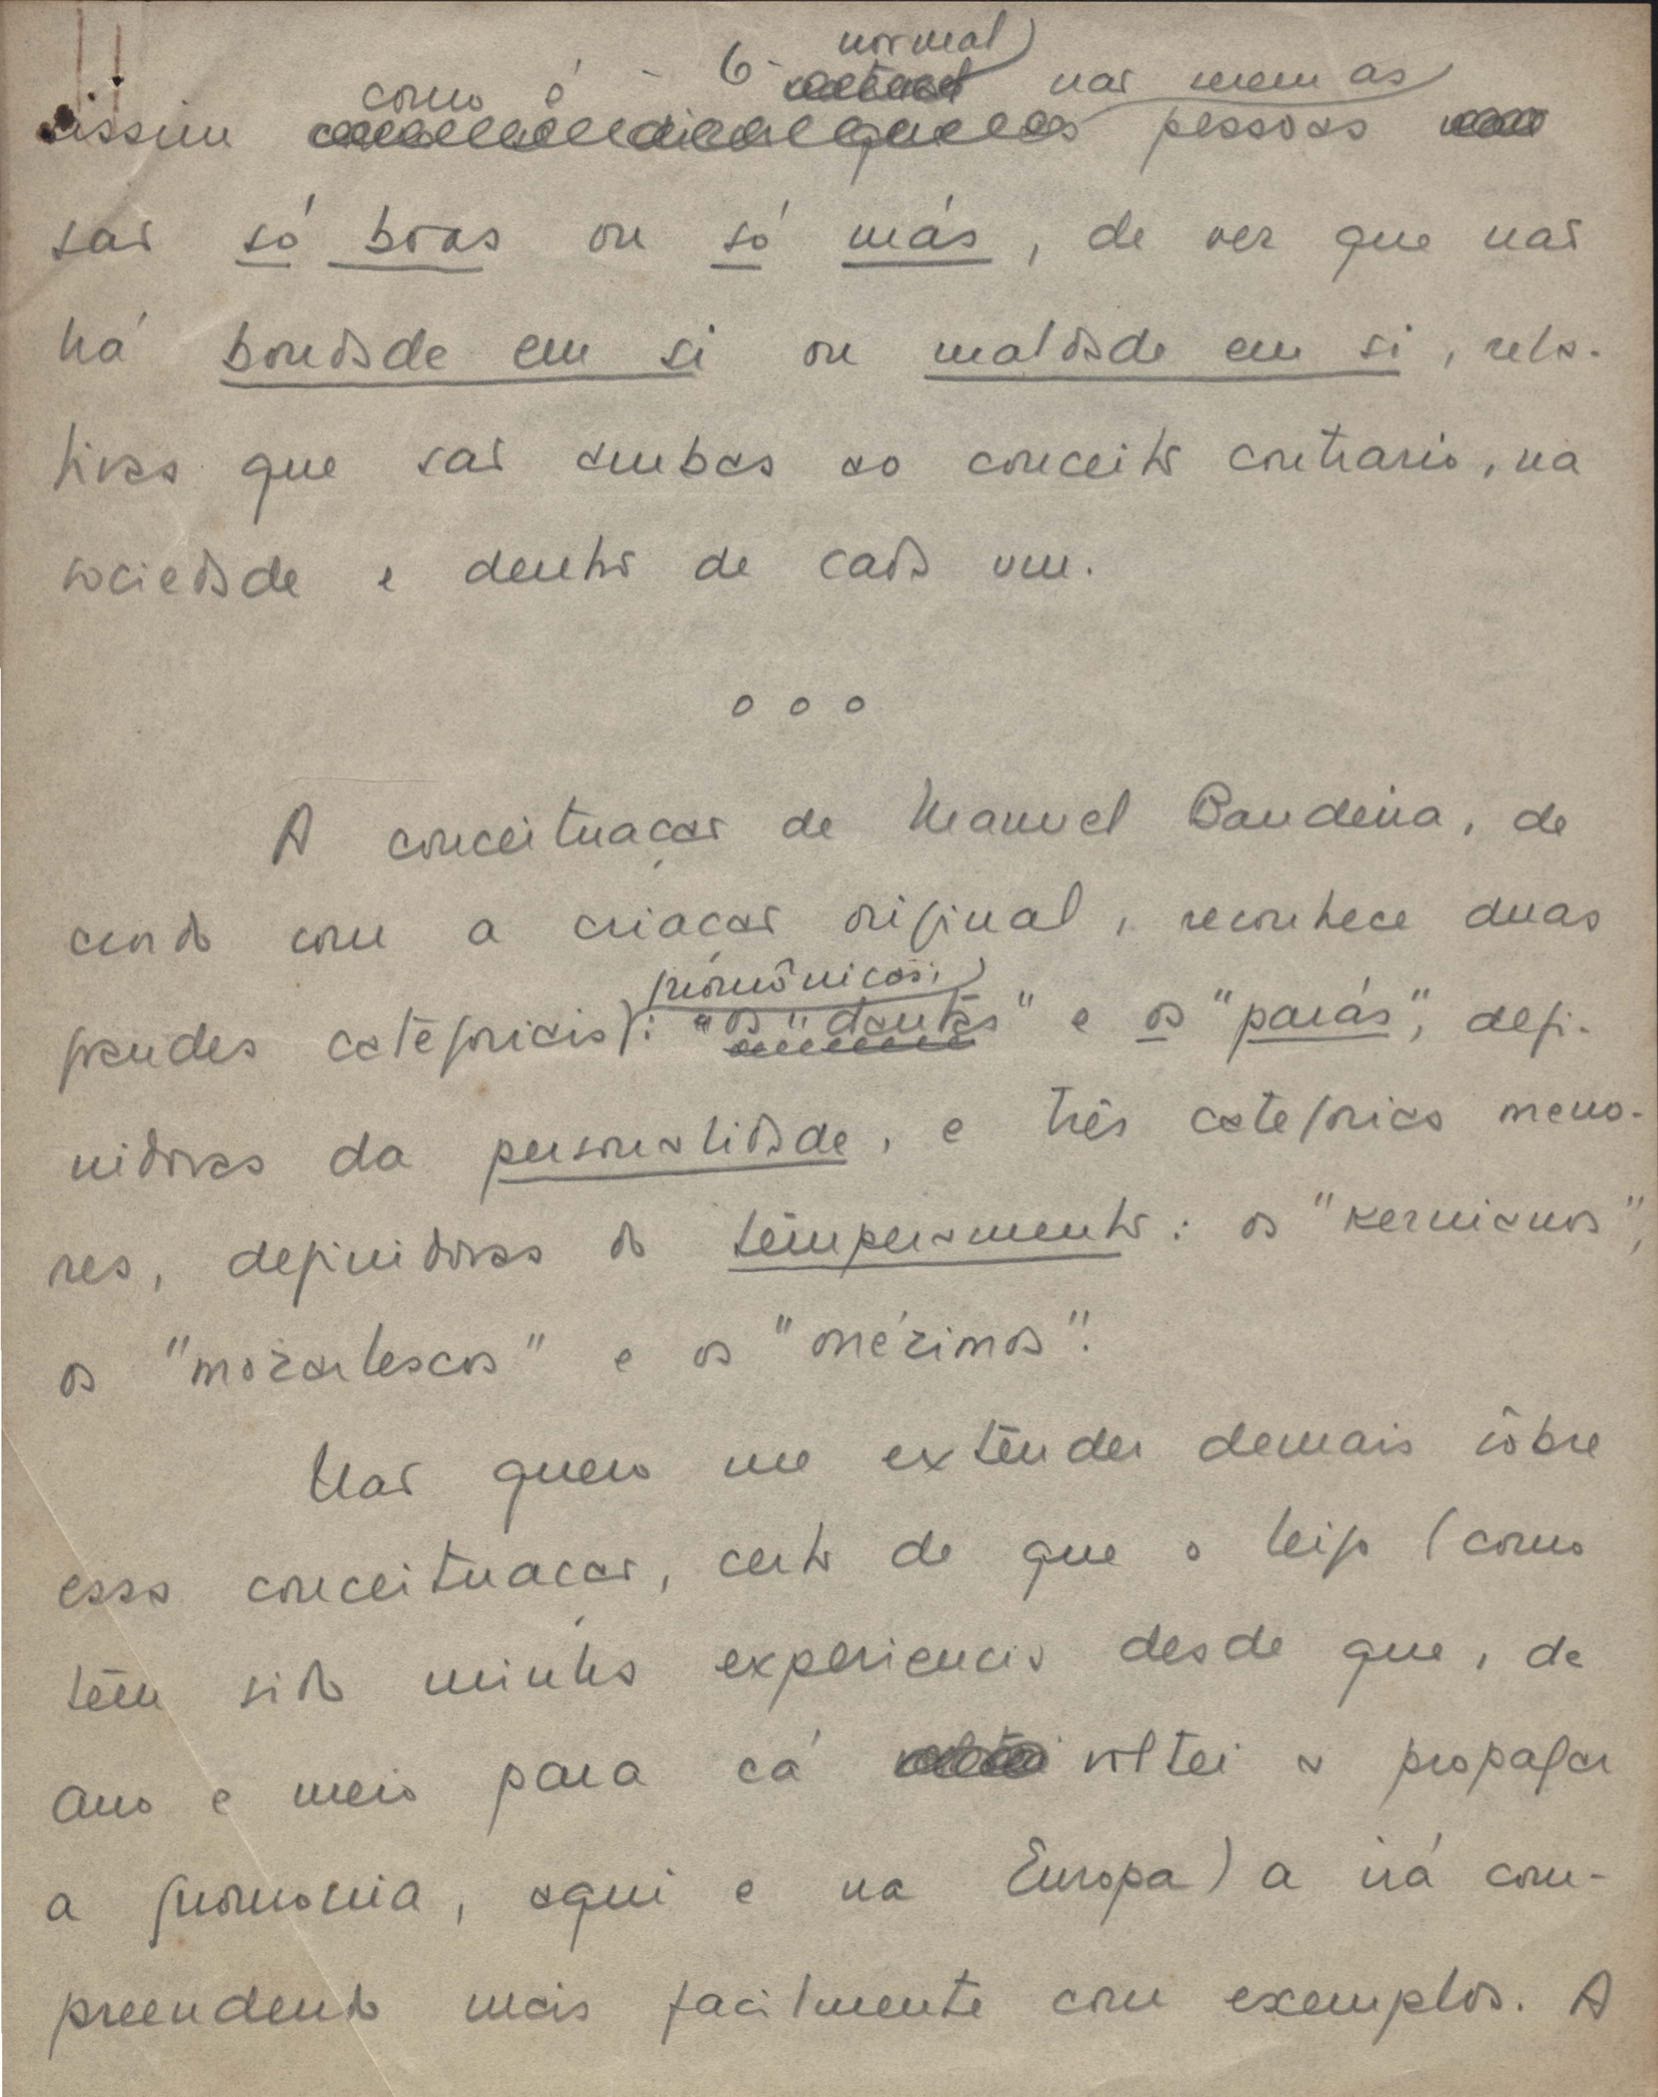 6-
assim como é normal não serem as pessoas
são só boas ou só más, de vez que não
há bondade em si ou maldade em si, rela-
tivas que são ambas ao conceito contrario, na
sociedade e dentro de cada um.
o o o
A conceituação de Manuel Bandeira, de
cordo com a criação original, reconhece duas
grandes categorias gnomônicas: "os "dantas" e os "parás", defi-
nidoras da personalidade, e três categorias meno-
res, definidoras do temperamento: os "kernianos",
os "mozarlescos" e os "onézimos".
Não quero me extender demais sôbre
essa conceituação, certo de que o leigo (como
tem sido minha experiencia desde que, de
ano e meio para cá voltei a propagar
a gnomonia, aqui e na Europa) a irá com-
preendendo mais facilmente com exemplos. A